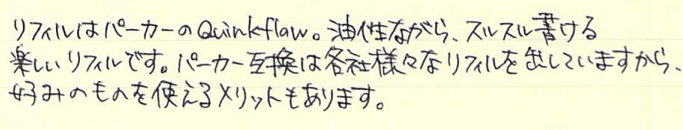 リフィルはパーカーのQuinkflaw。油性ながら、スルスル書ける
楽しいリフィルです。パーカー互換は各社様々なリフィルを出していますから、
好みのものを使えるメリットもあります。